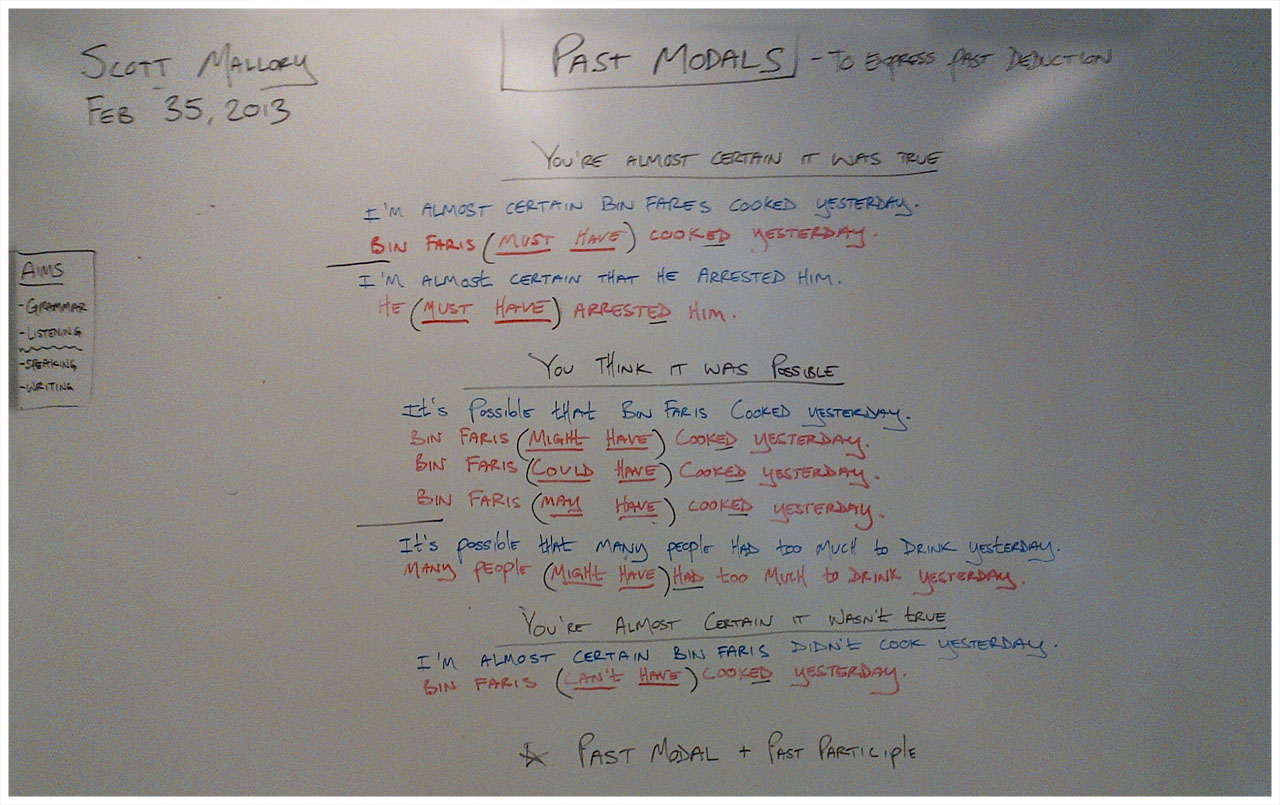 SCOTT MALLORY
FEB 35, 2013
PAST MODALS - TO EXPRESS PAST DEDUCTION
YOU'RE ALMOST CERTAIN IT WAS TRUE
I'M ALMOST CERTAIN BIN FARES COOKED YESTERDAY.
BIN FARIS (MUST HAVE) COOKED YESTERDAY.
I'M ALMOST CERTAIN THAT HE ARRESTED HIM.
HE (MUST HAVE) ARRESTED HIM.
AIMS
-GRAMMAR
-LISTENING
-SPEAKING
-WRITING
YOU THINK IT WAS POSSIBLE
IT'S POSSIBLE THAT BIN FARIS COOKED YESTERDAY.
BIN FARIS (MIGHT HAVE) COOKED YESTERDAY.
BIN FARIS (COULD HAVE) COOKED YESTERDAY.
BIN FARIS (MAY HAVE) COOKED YESTERDAY.
IT'S POSSIBLE THAT MANY PEOPLE HAD TOO MUCH TO DRINK YESTERDAY.
MANY PEOPLE (MIGHT HAVE) HAD TOO MUCH TO DRINK YESTERDAY.
YOU'RE ALMOST CERTAIN IT WASN'T TRUE
I'M ALMOST CERTAIN BIN FARIS DIDN'T COOK YESTERDAY.
BIN FARIS (CAN'T HAVE) COOKED YESTERDAY.
☆ PAST MODAL + PAST PARTICIPLE